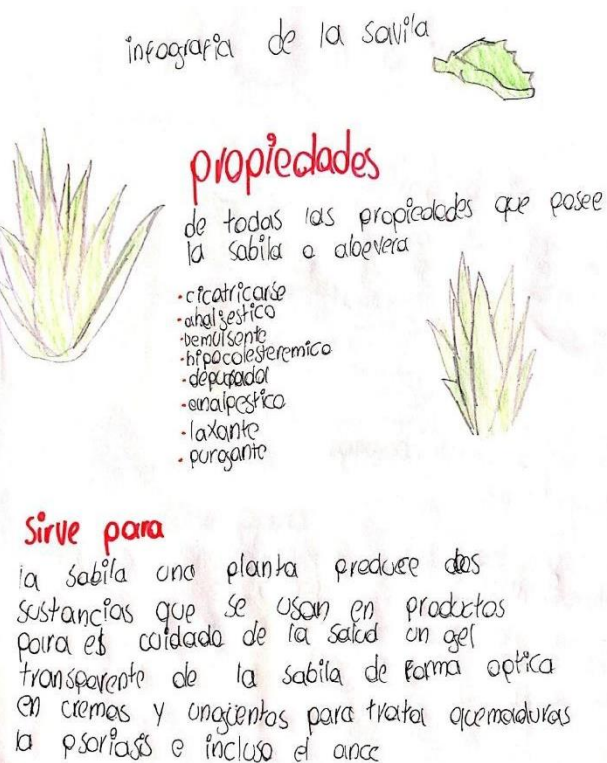 infografia de la savila
propiedades
de todas las propiedades que posee
la sabila o aloevera
•cicatricarse
•analgestico
•bemulsente
•hipocolesteremico
•depurador
•analpestico
•laxante
•purgante
Sirve para
la sabila una planta produce dos
sustancias que se usan en productos
para el cuidado de la salud un gel
transparente de la sabila de forma optica
en cremas y ungientos para tratar quemaduras
la psoriasis e incluso el ance